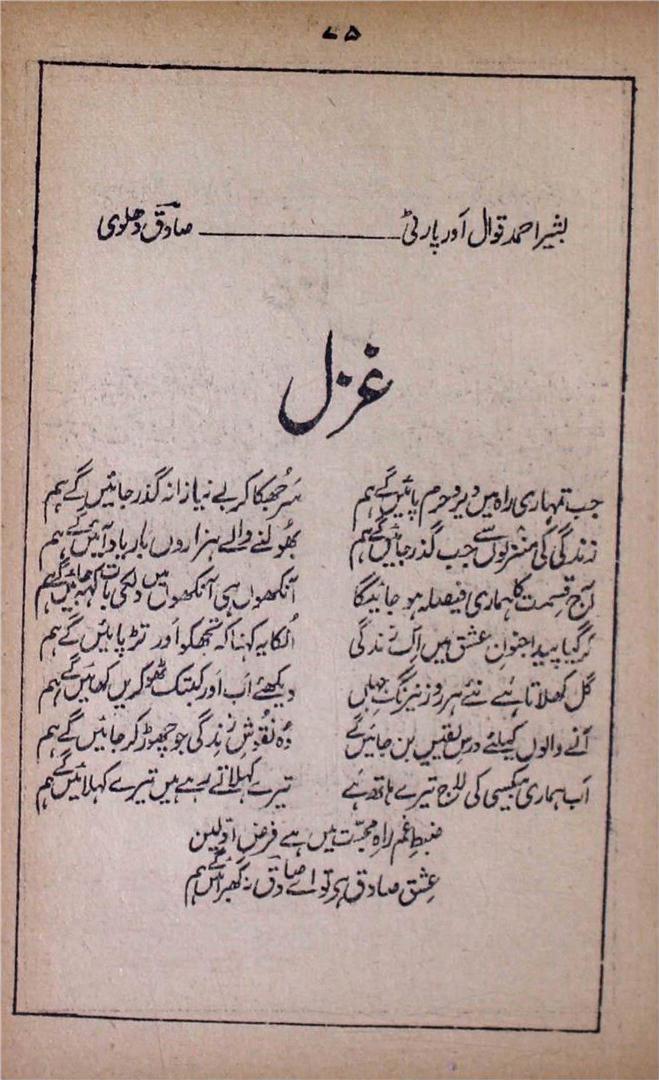 ۷۵
بشیر احمد قوال اور پارٹی ———— صادق دہلوی
غزل
جب تمہاری راہ میں دیر و حرم پائیں گے ہم سر جھکا کر بے نیازانہ گذر جائیں گے ہم
زندگی کی منزلوں سے جب گذر جائیں گے ہم بھولنے والے ہزاروں بار یاد آئیں گے ہم
آج قسمت کا ہماری فیصلہ ہو جائیگا آنکھوں ہی آنکھوں میں دل کی بات کہہ جائیں گے ہم
کر گیا پیدا جنونِ عشق میں اِک زندگی اُنکا یہ کہنا کہ تجھکو اور تڑپائیں گے ہم
گل کھلاتا ہے نئے ہر روز نیرنگِ جہاں دیکھئے اب اور کبتک ٹھوکریں کھائیں گے ہم
آنے والوں کیلئے درسِ یقیں بن جائیں گے وہ نقوشِ زندگی جو چھوڑ کر جائیں گے ہم
اب ہماری بیکسی کی لاج تیرے ہاتھ ہے تیرے کہلاتے رہے ہیں تیرے کہلائیں گے ہم
ضبطِ غم راہِ محبت میں ہے فرضِ اولین
عشق صادق ہے تو اے صادق نہ گھبرائیں گے ہم